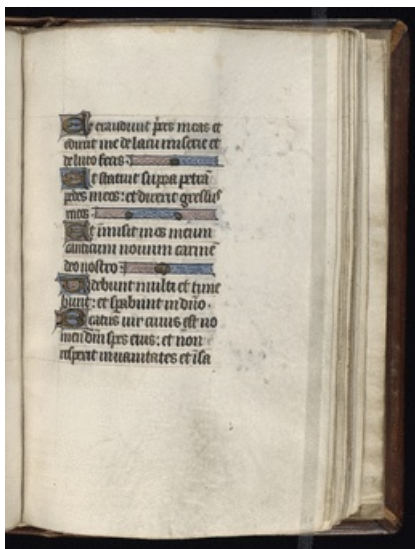 Et exaudiuit p̄ces meas et
eduxit me de lacu miserie et
de luto fecis.
Et statuit supra petrā
pedes meos: et direxit gressus
meos.
Et inmisit in os meum
canticum nouum carmē
deo nostro.
Uidebunt multi et time
bunt: et sp̄abunt in dn̄o.
Beatus uir cuius est no
men dn̄i spes eius: et non
respexit in uanitates et īsa